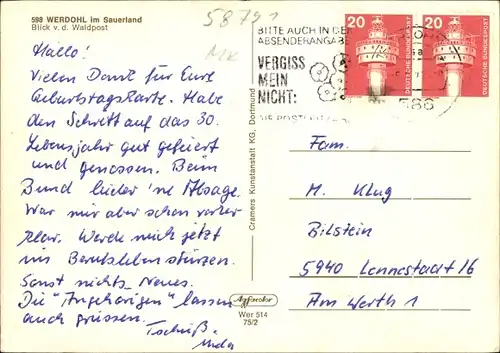 598 WERDOHL im Sauerland
Blick v. d. Waldpost
58791
MK
Hallo!
Vielen Dank für Eure
Geburtstagskarte. Habe
den Schritt auf das 30.
Lebensjahr gut gefeiert
und genossen. Beim
Bund leider 'ne Absage.
War mir aber schon vorher
klar. Werde mich jetzt
ins Berufsleben stürzen.
Sonst nichts Neues.
Die "Angehörigen" lassen
auch grüssen.
Tschüß
Cramers Kunstanstalt KG, Dortmund
Agfacolor
Wer 514
75/2
BITTE AUCH IN DER
ABSENDERANGABE
VERGISS
MEIN
NICHT:
DIE POSTLEITZAHL
20
DEUTSCHE BUNDESPOST
20
DEUTSCHE BUNDESPOST
Fam.
M. Klug
Bilstein
5940 Lennestadt 16
Am Werth 1